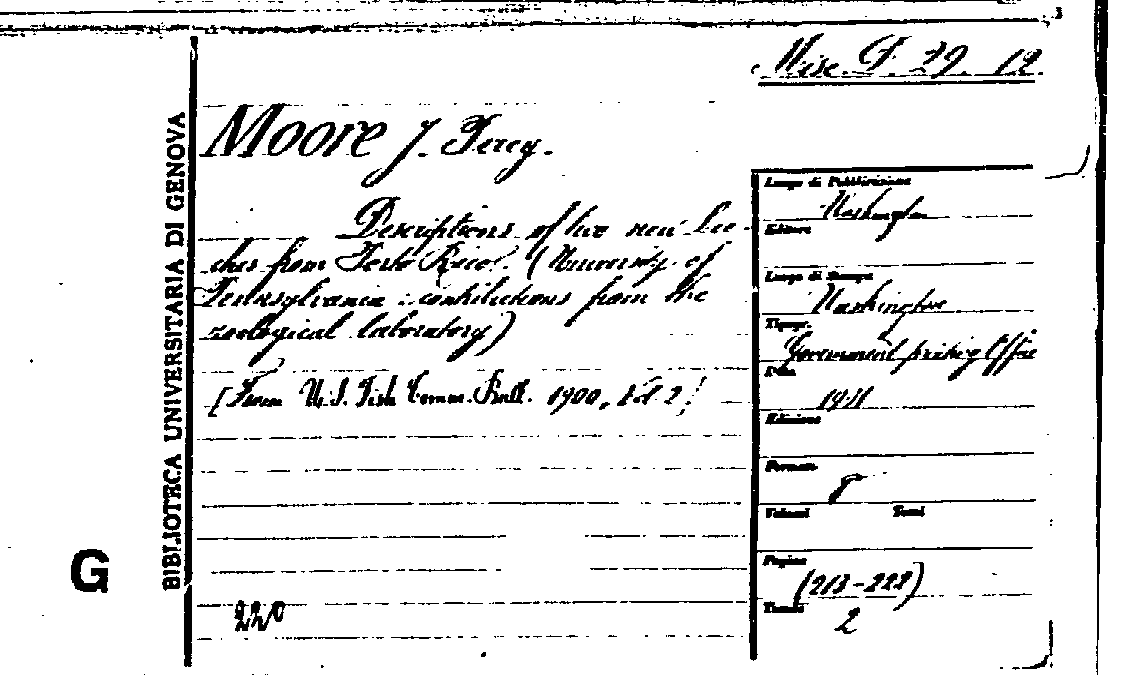 Misc. D. 29. 12.
BIBLIOTECA UNIVERSITARIA DI GENOVA
Moore J. Percy.
Descriptions of two new Lee-
ches from Porto Rico. (University of
Pennsylvania: contributions from the
zoological laboratory)
[From U. S. Fish Comm. Bull. 1900, Vol 2]
220
G
Luogo di Pubblicazione
Washington
Editore
Luogo di Stampa
Washington
Tipogr.
Government printing Office
Data
Edizione
Formato
8
Volumi Tomi
Pagine
(213-222)
Tavole
2